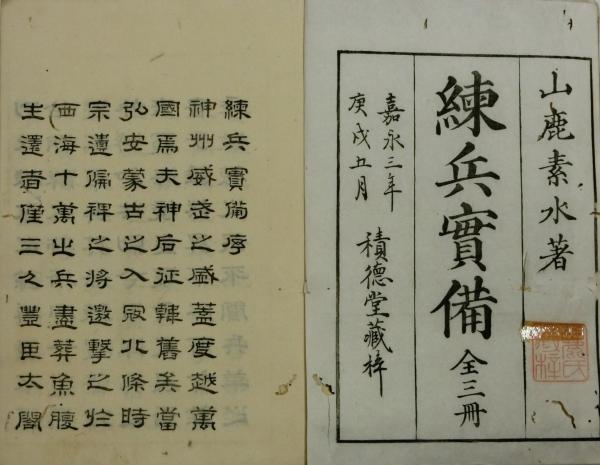 山鹿素水著
練兵實備 全三冊
嘉永三年
庚戌五月 積德堂藏梓
練兵實備序
神州威武之盛蓋度越萬
國焉夫神后征韓舊矣當
弘安蒙古之入寇北條時
宗遣偏裨之將邀擊之於
西海十萬之兵盡葬魚腹
生還者僅三人豊臣太閤